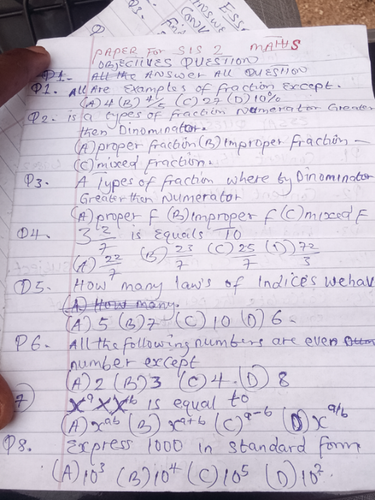 PAPER FOR SIS 2 MATHS
OBJECTIVES QUESTION
All the ANSWER ALL QUESTION
Q1. All Are Examples of fraction Except.
(A) 4 (B) 4/5 (C) 27 (D) 10%
Q2. is a types of fraction Numerator Greater
then Dinominator.
(A) proper fraction (B) Improper fraction -
(C) mixed fraction.
Q3. A Types of fraction where by Dinominator
Greater then Numerator
(A) proper f (B) Improper f (C) mixed f
Q4. 3 2/7 is Equals To
(A) 22/7 (B) 23/7 (C) 25/7 (D) 72/3
Q5. How many law's of Indices we hav
(A) How many.
(A) 5 (B) 7 (C) 10 (D) 6
Q6. All the following numbers are even
number except
(A) 2 (B) 3 (C) 4. (D) 8
7 xᵃ × xᵇ is equal to
(A) xᵃᵇ (B) xᵃ⁺ᵇ (C) ᵃ⁻ᵇ (D) xᵃ/ᵇ
Q8. Express 1000 in standard form
(A) 10³ (B) 10⁴ (C) 10⁵ (D) 10².